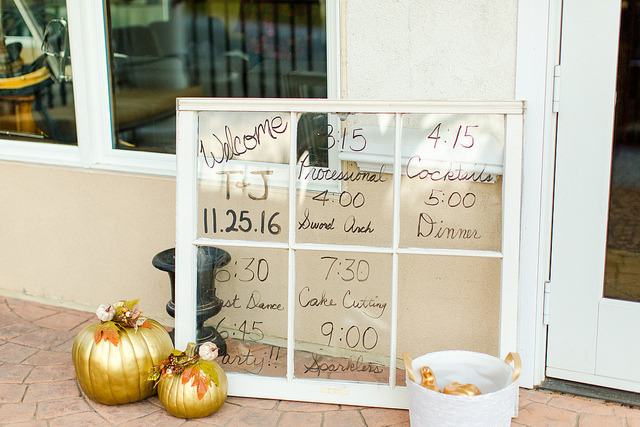 Welcome
T & J
11.25.16
3:15
Processional
4:00
Sword Arch
4:15
Cocktails
5:00
Dinner
6:30
First Dance
6:45
Party!!
7:30
Cake Cutting
9:00
Sparklers